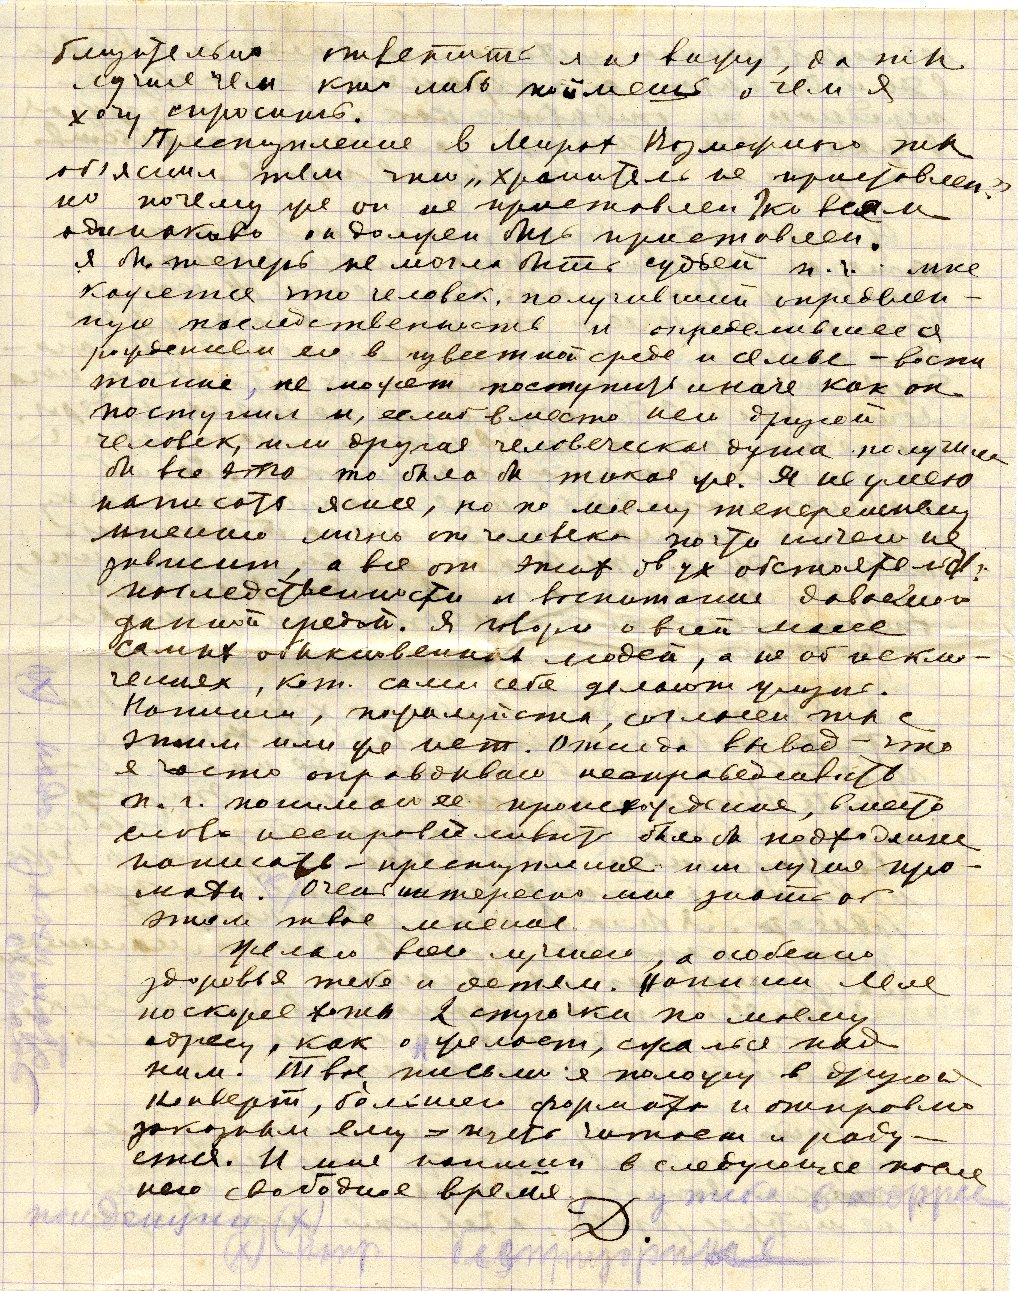 близительно ответить я не вижу, да ты
лучше чем кто либо поймешь о чем я
хочу спросить.
Преступление в Мирах Возмездного ты
объяснил тем что „хранитель не приставлен”
но почему же он не приставлен? ко всем
одинаково он должен быть приставлен.
я бы теперь не могла быть судьей п.ч. мне
кажется что человек, получивший определен-
ную наследственность и определившееся
рождением его в известной среде и семье – воспи
тание, не может поступить иначе как он
поступил и, если б вместо него другой
человек, или другая человеческая душа получила
бы все это то было бы такое же. Я не умею
написать яснее, но по моему теперешнему
мнению лично от человека почти ничего не
зависит, а все от этих двух обстоятельств:
наследственности и воспитание даваемого
данной средой. Я говорю о всей массе
самых обыкновенных людей, а не об исклю-
чениях, кот. сами себе делают жизнь.
Напиши, пожалуйста, согласен ты с
этим или же нет. Отсюда вывод – что
я часто оправдываю несправедливость
п.ч. понимаю ее происхождение, вместо
слова несправедливость было бы подходящее
написать – преступление или лучше про-
махи. Очень интересно мне знать об
этом твое мнение.
Желаю всего лучшего, а особенно
здоровья тебе и детям. Напиши Леле
поскорее хоть 2 строчки по моему
адресу, как о милости, сжалься над
ним. Твое письмо я положу в другой
конверт, большего формата и отправлю
заказным ему – пусть читает и раду-
ется. И мне напиши в следующее после
него свободное время.
Д.
у тебя в
(х)
(х)